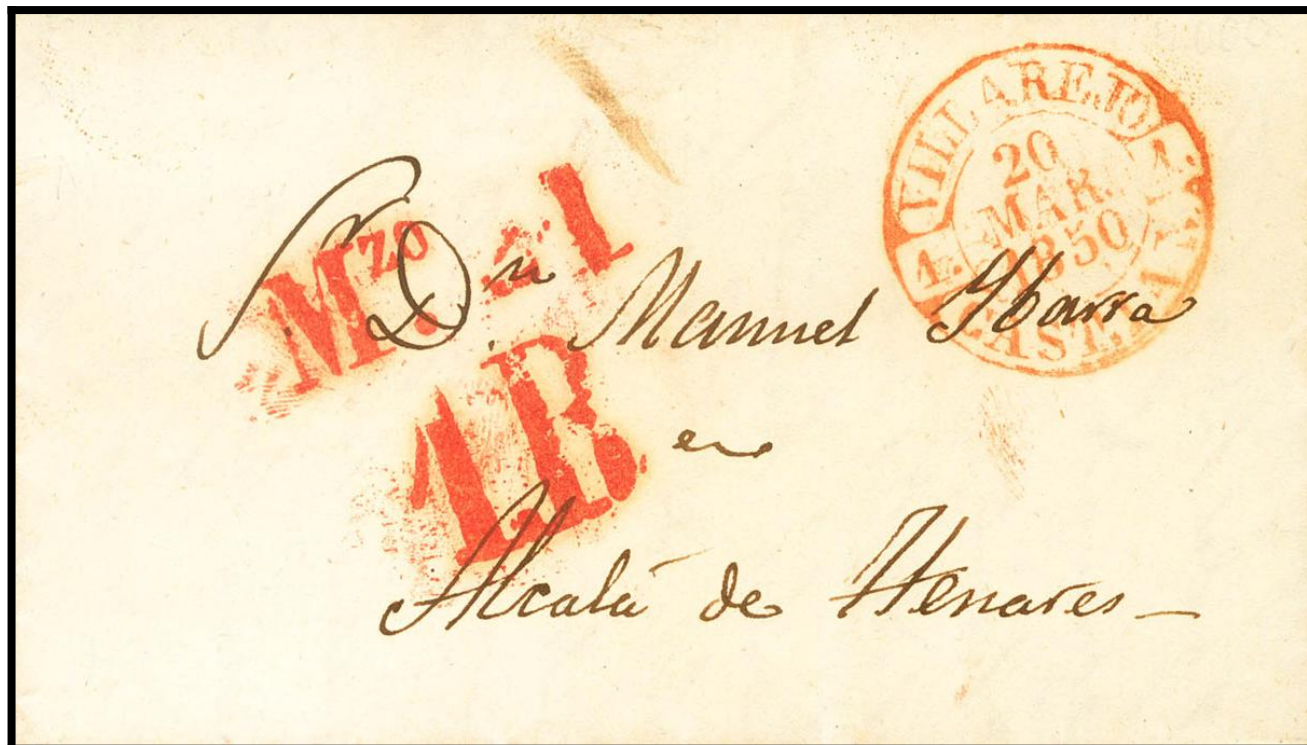 VILLAREJO
20
MAR.
1850
CAST. N.
Mzo. 21
Sr. Dn. Manuel Ybarra
1R.
en
Alcalá de Henares